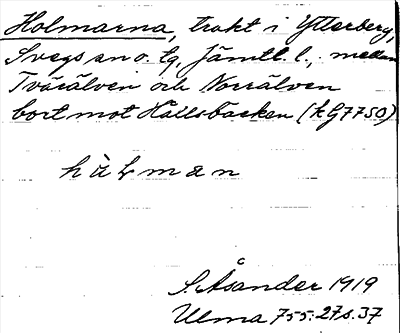 Holmarna, trakt i Ytterberg,
Svegs sn o. tg, Jämtl. l., mellan
Tvärälven och Norrälven
bort mot Hållsbäcken (k G7750)
hàɫman
S. Åsander 1919
Ulma 755:27 s. 37